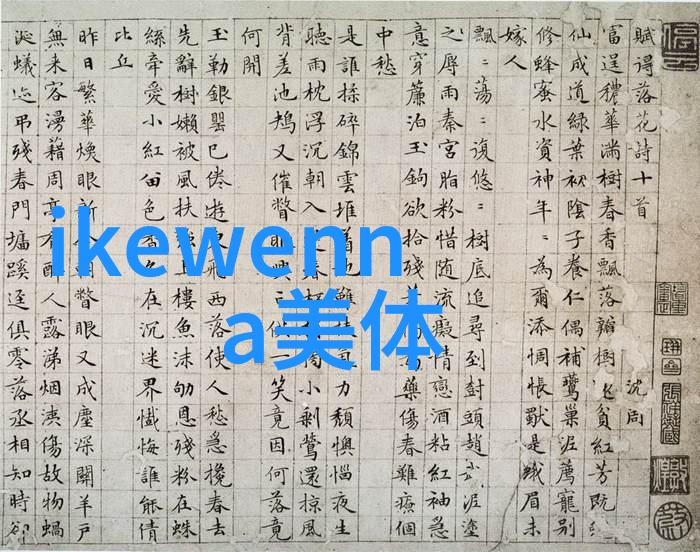 賦得落花詩十首 沈周
富逞穠華滿樹春香飄落瓣樹還貧紅芳既
仙成道綠葉初陰子養仁偶補鶯巢泥薦寵別
修蜂蜜水資神年〻為爾添惆悵是蛾眉未
嫁人
飄〻蕩〻復悠〻樹底追尋到樹頭趙武泥塗
之辱雨秦宮脂粉惜隨流癡情戀酒粘紅袖急
意穿簾泊玉鉤欲拾殘藥傷春難療個
中愁
是誰揉碎錦雲堆着地難力頹懊惱夜生
聽雨枕浮沉朝入小剝鶯還掠風
背差池鴂又催瞥眼笑竟因何落竟
何開
玉勒銀罌已倦遊東飛西落使人愁急攙春去
先辭樹嬾被風扶強上樓魚沫劬恩殘粉在蛛
絲牽愛小紅留色香在沉迷界懺悔誰能倩
比丘
昨日繁華煥眼新今朝瞥眼又成塵深關羊戶
無來客漫藉周亭有醉人露涕烟洟傷故物蝸
涎蟻迹弔殘春門墻蹊徑俱零落丞相知時卻
ikewenn
a美体